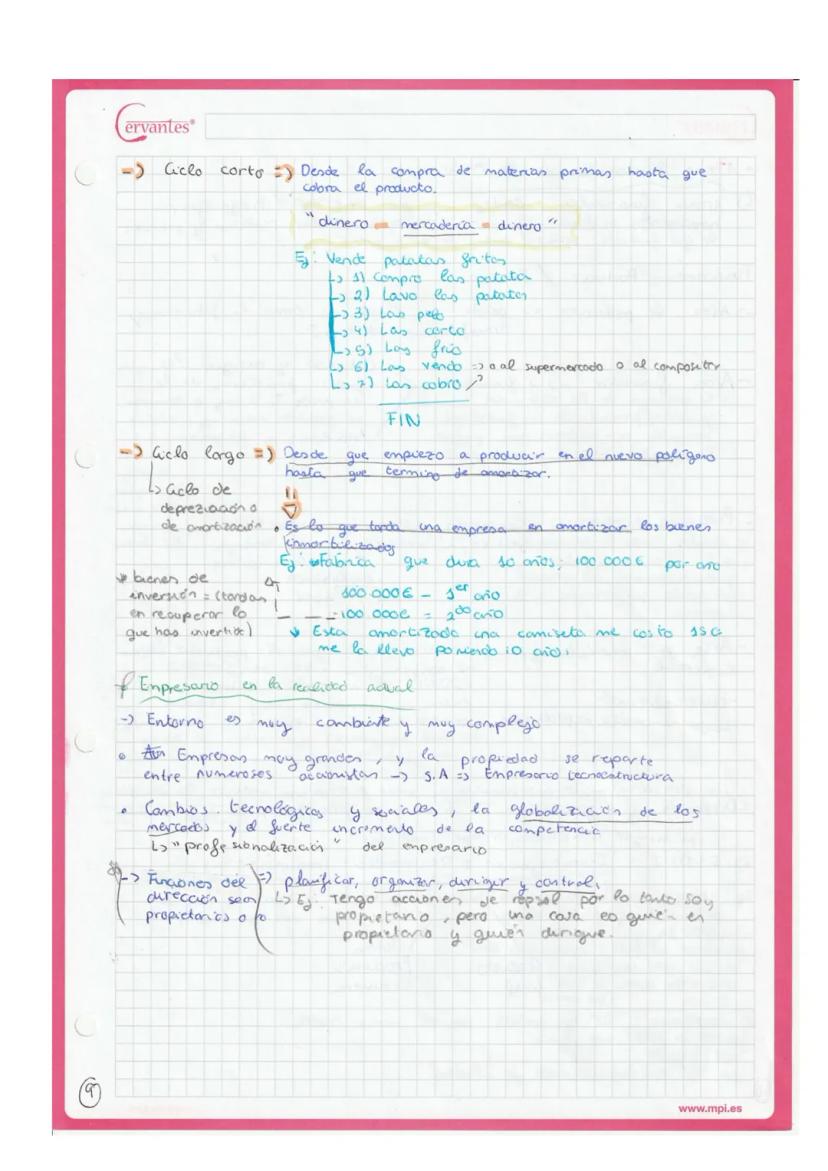 Cervantes®
-) Ciclo corto =) Desde la compra de materias primas hasta que
cobra el producto.
"dinero = mercadería = dinero"
Ej: Vende patatas fritas
↳ 1) Compro las patata
↳ 2) Lavo las patatas
↳ 3) Las pelo
↳ 4) Las corto
↳ 5) Las frío
↳ 6) Las vendo => o al supermercado o al
↳ 7) Las cobro
FIN
-) Ciclo largo =) Desde que empiezo a producir en el nuevo polígono
hasta que termino de amortizar.
↳ Ciclo de
depreziación o
de amortización
• Es lo que tarda una empresa en amortizar los bienes
inmobilizados
Ej: Fábrica que dura 10 años; 100 000€ por año
bienes de
inversión = (tardan
en recuperar lo
que has invertido)
100 000€ - 1er año
100 000€ = 2do año
Esta amortizada una camiseta me costo 15€
me la llevo poniendo 10 años.
Empresario en la realidad actual
-) Entorno es muy cambiante y muy complejo
• Empresas muy grandes, y la propiedad se reparte
entre numerosos accionistas -> S.A => Empresario tecnoestructura
• Cambios tecnológicos y sociales, la globalización de los
mercados y el fuerte incremento de la competencia
↳ "profesionalización" del empresario
-> Funciones del
dirección sean
propietarios o no
=) planificar, organizar, dirigir y control.
↳ Ej: Tengo acciones de repsol por lo tanto soy
propietario, pero una cosa es quién es
propietario y quién dirigue.
9
www.mpi.es